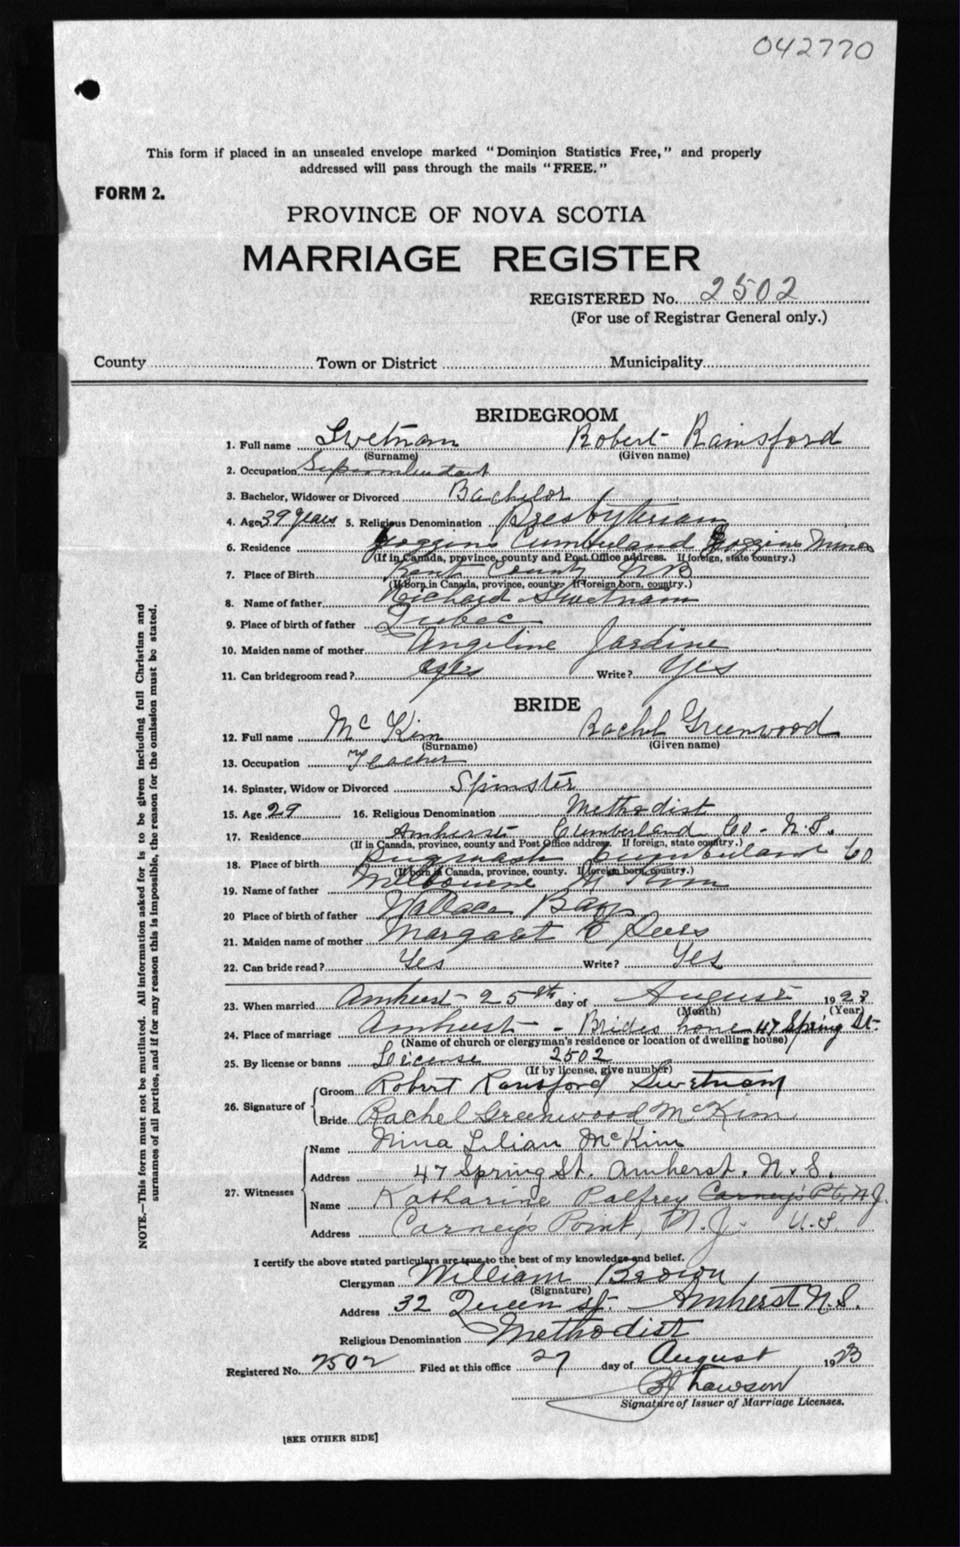 042770
This form if placed in an unsealed envelope marked "Dominion Statistics Free," and properly
addressed will pass through the mails "FREE."
FORM 2.
PROVINCE OF NOVA SCOTIA
MARRIAGE REGISTER
REGISTERED No. 2502
(For use of Registrar General only.)
County Town or District Municipality
BRIDEGROOM
1. Full name Swetnam Robert Rainsford
(Surname) (Given name)
2. Occupation
3. Bachelor, Widower or Divorced Bachelor
4. Age 39 years 5. Religious Denomination Presbyterian
6. Residence Joggins Cumberland Joggins Mines
(If in Canada, province, county and Post Office address. If foreign, state country.)
7. Place of Birth Kent County NB
(If born in Canada, province, county. If foreign born, country.)
8. Name of father Richard Swetnam
9. Place of birth of father Qubec
10. Maiden name of mother Angeline Jardine
11. Can bridegroom read? yes Write? Yes
BRIDE
12. Full name Mc Kim Rachel Greenwood
(Surname) (Given name)
13. Occupation Teacher
14. Spinster, Widow or Divorced Spinster
15. Age 29 16. Religious Denomination Methodist
17. Residence Amherst Cumberland Co. N.S.
(If in Canada, province, county and Post Office address. If foreign, state country.)
18. Place of birth Pugwash Cumberland Co
(If born in Canada, province, county. If foreign born, country.)
19. Name of father Melbourne Mc Kim
20 Place of birth of father Wallace Bay
21. Maiden name of mother Margaret E
22. Can bride read? Yes Write? Yes
23. When married Amherst 25th day of August 1923
(Month) (Year)
24. Place of marriage Amherst - Brides home 47 Spring St.
(Name of church or clergyman's residence or location of dwelling house)
25. By license or banns License 2502
(If by license, give number)
26. Signature of Groom Robert Rainsford Swetnam
Bride Rachel Greenwood McKim
27. Witnesses Name Nina Lilian McKim
Address 47 Spring St. Amherst. N.S.
Name Katharine Palfrey Carney's Pt, N.J.
Address Carney's Point, N.J. U.S
I certify the above stated particulars are true to the best of my knowledge and belief.
Clergyman William Brown
(Signature)
Address 32 Queen St. Amherst N.S.
Religious Denomination Methodist
Registered No. 2502 Filed at this office 27 day of August 1923
Lawson
Signature of Issuer of Marriage Licenses.
[SEE OTHER SIDE]
NOTE.—This form must not be mutilated. All information asked for is to be given including full Christian and
surnames of all parties, and if for any reason this is impossible, the reason for the omission must be stated.